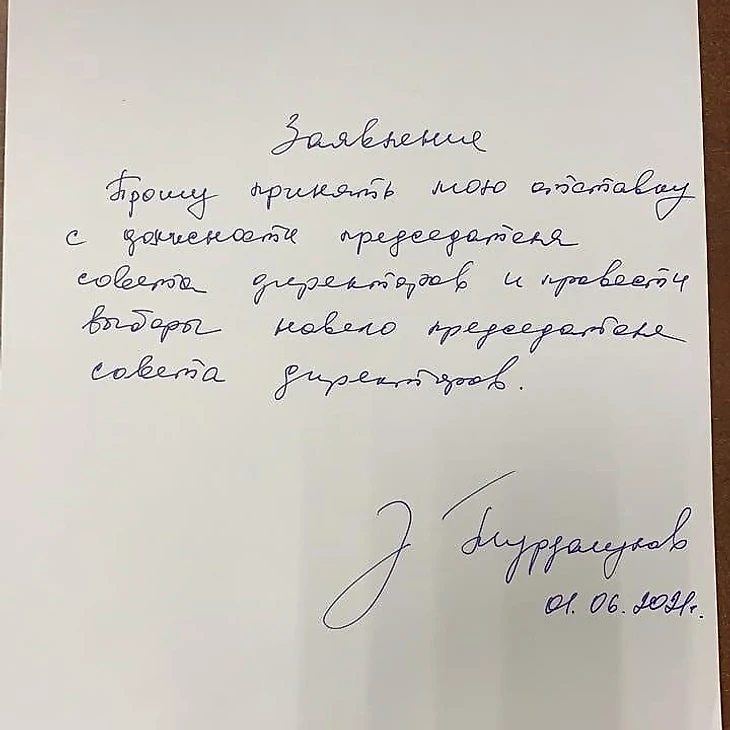 Заявление
Прошу принять мою отставку
с должности председателя
совета директоров и провести
выборы нового председателя
совета директоров.
Турдалиев
01.06.2021г.